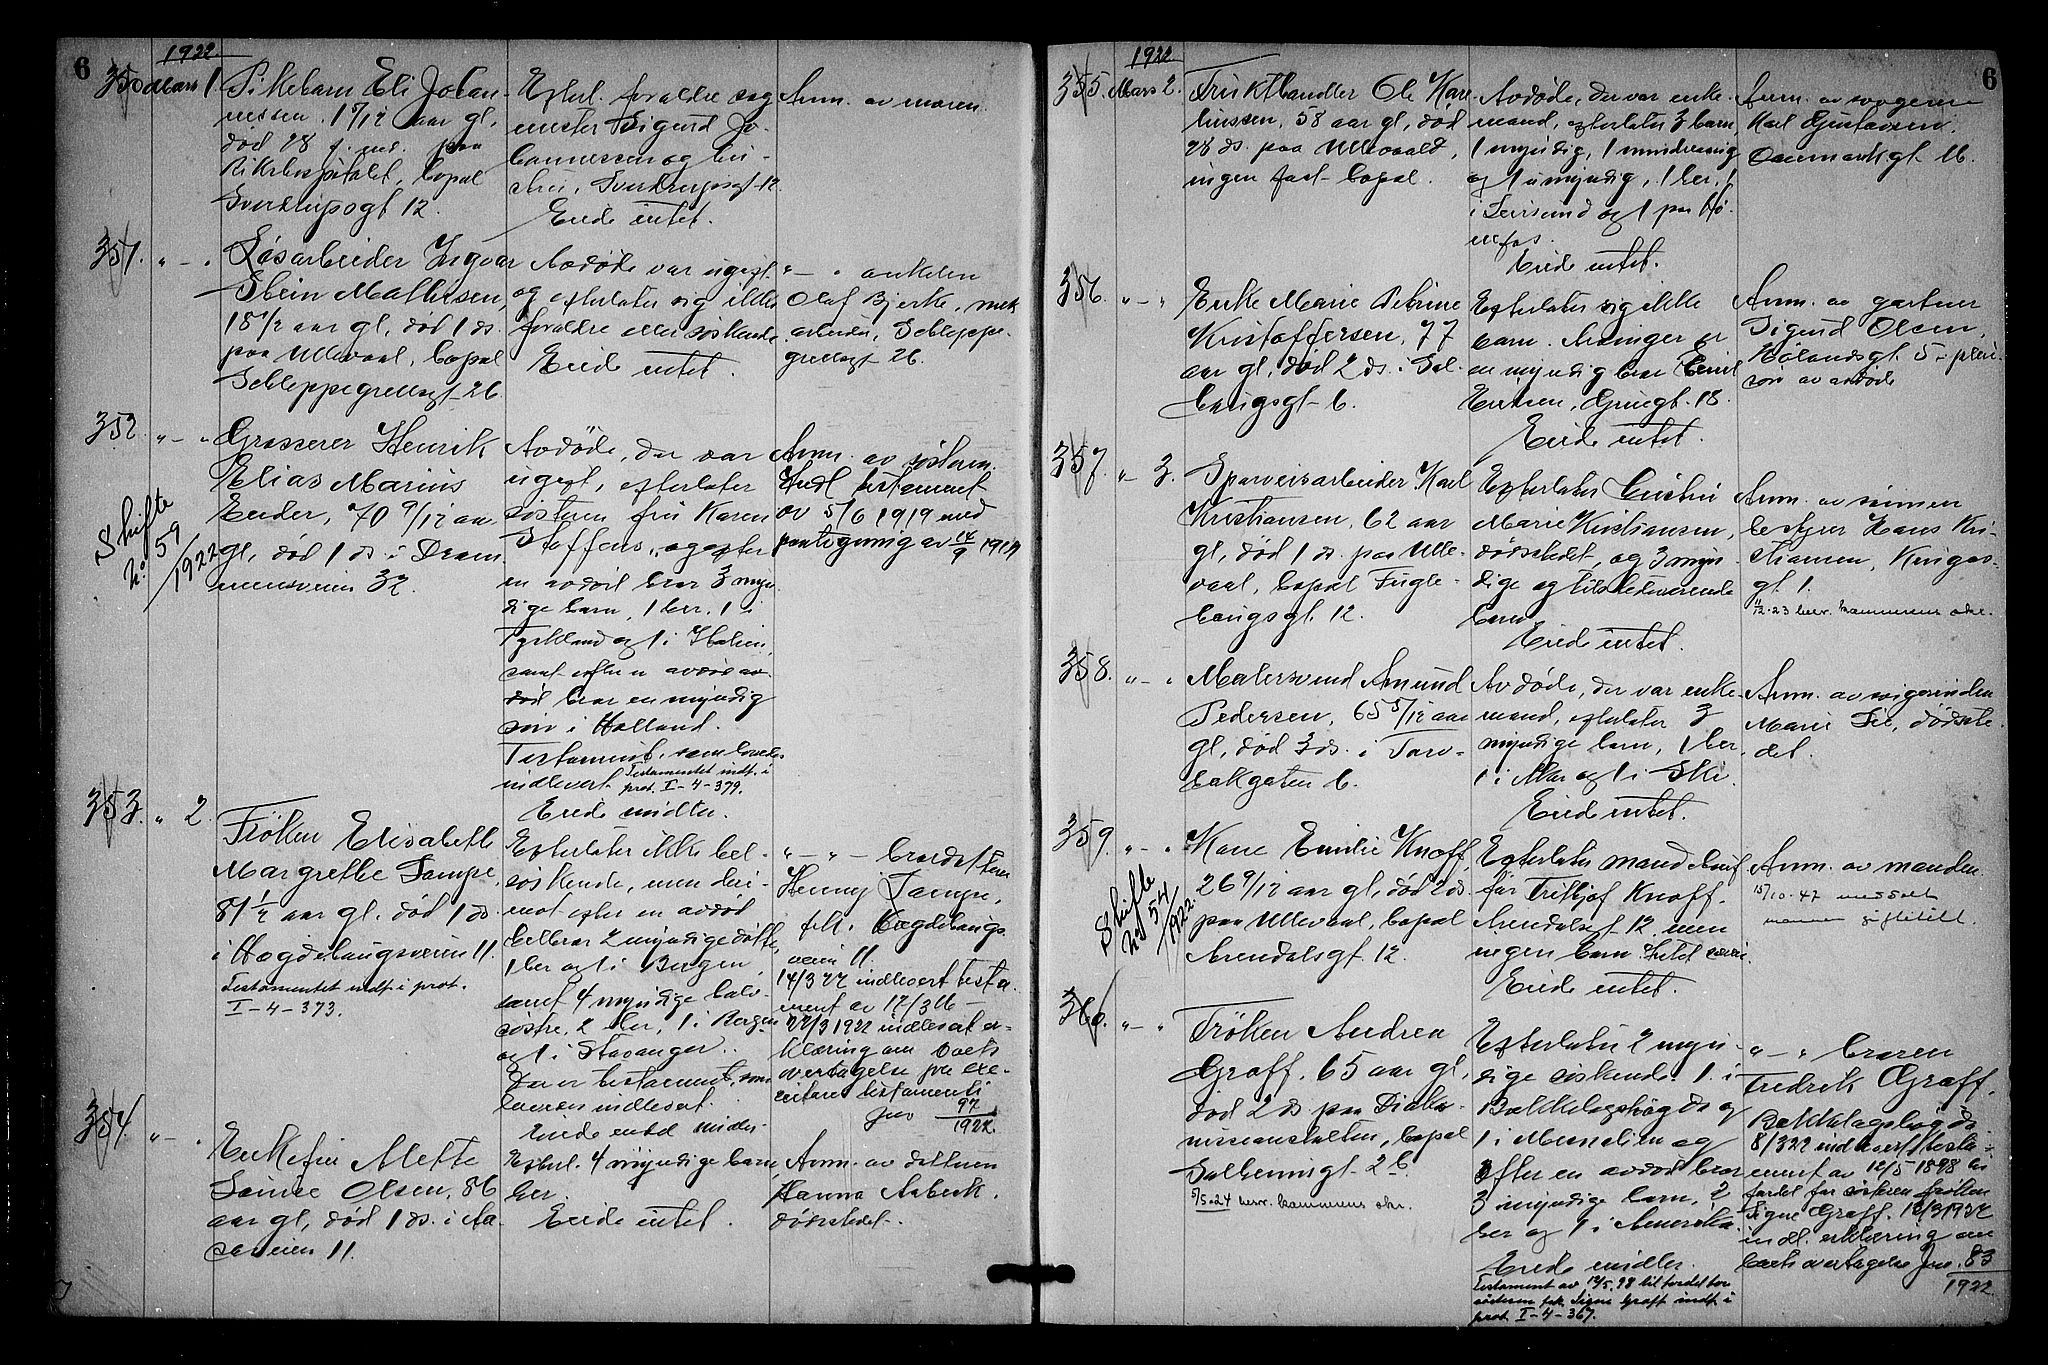 6
1922
350. Mars 1.
Pikebarn Eli Johan-
nessen, 1 7/12 aar gl,
død 28 f. md. paa
Rikshospitalet, bopæl
Sverdrupsgt 12.
Efterl. forældre sag
mester Sigurd Jo-
hannessen og hu-
stru, Sverdrupsgt 12.
Eiede intet.
Anm. av moren.
351. " - "
Løsarbeider Ingvar
Stein Mathisen,
18 1/2 aar gl, død 1 ds.
paa Ullevaal, bopæl
Schleppegrellsgt 26.
Avdøde var ugift
og efterlater sig ikke
forældre eller søskende.
Eiede intet.
" - " onkelen
Olaf Bjerke, mek
arbeider, Schleppe-
grellsgt 26.
352. " - "
Skifte
No 59
/1922
Grosserer Henrik
Elias Marius
Ender, 70 9/12 aar
gl, død 1 ds. i Dram
mensveien 32.
Avdøde, der var
ugift, efterlater
søsteren fru Karen
Steffens, og efter
en avdød bror 3 myn
dige barn, 1 her, 1 i
Tyskland og 1 i Italien,
samt efter en avdød
bror en myndig
søn i Holland.
Testament, som loves
indlevert. Testamentet indt. i
prot. I-4-379.
Eiede midler.
Anm. av søsteren.
Indl. testament
av 5/6 1919 med
paategning av 14/9 1919
353. " 2.
Frøken Elisabeth
Margrethe Jampe,
81 1/2 aar gl, død 1 ds.
i Høgdehaugsveien 11.
Testamentet indt. i prot.
I-4-373.
Efterlater ikke hel-
søskende, men der-
imot efter en avdød
helbror 2 myndige døttre,
1 her og 1 i Bergen,
samt 4 myndige halv-
søstre, 2 her, 1 i Bergen
og 1 i Stavanger.
Der er testament, som
loves indlevert.
Eiede midler.
" - " - brordatteren
Henny Jampe,
frk. Høgdehaugs-
veien 11.
14/3 22 indlevert testa-
ment av 17/3 16 -
22/3 1922 indlevert er-
klæring om boets
overtagelse fra exe-
cutores testamenti
Jnr 97
1922.
354. " - "
Enkefru Mette
Louise Olsen, 86
aar gl, død 1 ds. i Aa-
saveien 11.
Efterl. 4 myndige barn,
her.
Eiede intet.
Anm. av datteren
Hanna Aabeck.
dødsstedet.
1922
6
355. Mars 2.
Frukthandler Ole Kare
liussen, 58 aar gl, død
28 ds. paa Ullevaal,
ingen fast bopæl.
Avdøde, der var enke-
mand, efterlater 3 barn,
1 myndig, 1 mindreaarig
og 1 umyndig, 1 her, 1
i Leirsund og 1 paa Hø-
nefos.
Eiede intet.
Anm. av svogeren
Karl Gustavsen.
Danmarksgt 16.
356. " - "
Enke Marie Petrine
Kristoffersen, 77
aar gl, død 2 ds. i Sol-
haugsgt 6.
Efterlater sig ikke
barn. Arvinger er
en myndig bror Emil
Eriksen, Gruegt. 18.
Eiede intet.
Anm. av gartner
Sigurd Olsen,
Hølandsgt. 5 - pleie-
søn av avdøde
357. " 3.
Sporveisarbeider Karl
Kristiansen, 62 aar
gl, død 1 ds. paa Ulle-
vaal, bopæl Fugle-
haugsgt. 12.
Efterlater hustru
Marie Kristiansen,
dødsstedet, og 3 myn-
dige og tilstedeværende
barn
Eiede intet.
Anm. av sønnen
bestyrer Hans Kri-
stiansen, Kingos-
gt 1.
358. " - "
Malersvend Amund
Pedersen, 65 5/12 aar
gl, død 3 ds. i Torv-
bakgaten 6.
Avdøde, der var enke-
mand, efterlater 3
myndige barn, 1 her
1 i Mos og 1 i Ski.
Eiede intet.
Anm. av svigerinden
Marie Lie, dødsste-
det.
359. " - "
Skifte
No 54
/1922.
Kone Emilie Knoff,
26 9/12 aar gl, død 2 ds.
paa Ullevaal, bopæl
Arendalsgt. 12.
Efterlater mand
Tritjof Knoff.
Arendalsgt. 12. men
ingen barn.
Eiede intet.
Anm. av manden
15/10-47 meddelt
mannen skiftetill.
360. " - "
Frøken Andrea
Graff, 65 aar gl,
død 2 ds paa Diako-
nisseanstalten, bopæl
Solheimsgt. 2 b.
5/5-24 bevr. kammerens okr.
Efterlater 2 myn-
dige søskende. 1 i
Bækkelagshøgda og
1 i Messalien og
efter en avdød bror
3 myndige barn, 2
her og 1 i Amerika.
Eiede midler.
Testament av 12/5.98 til fordel for
søsteren frk. Signe Graff indt. i
prot. I-4-367.
" - " broren
Fredrik Graff,
Bækkelagshøgda.
8/3 22 indlevert testa-
ment av 12/5 1898 til
fordel for søsteren frøken
Signe Graff. 12/3 1922
indl. erklæring om
boets overtagelse Jnr. 83
1922